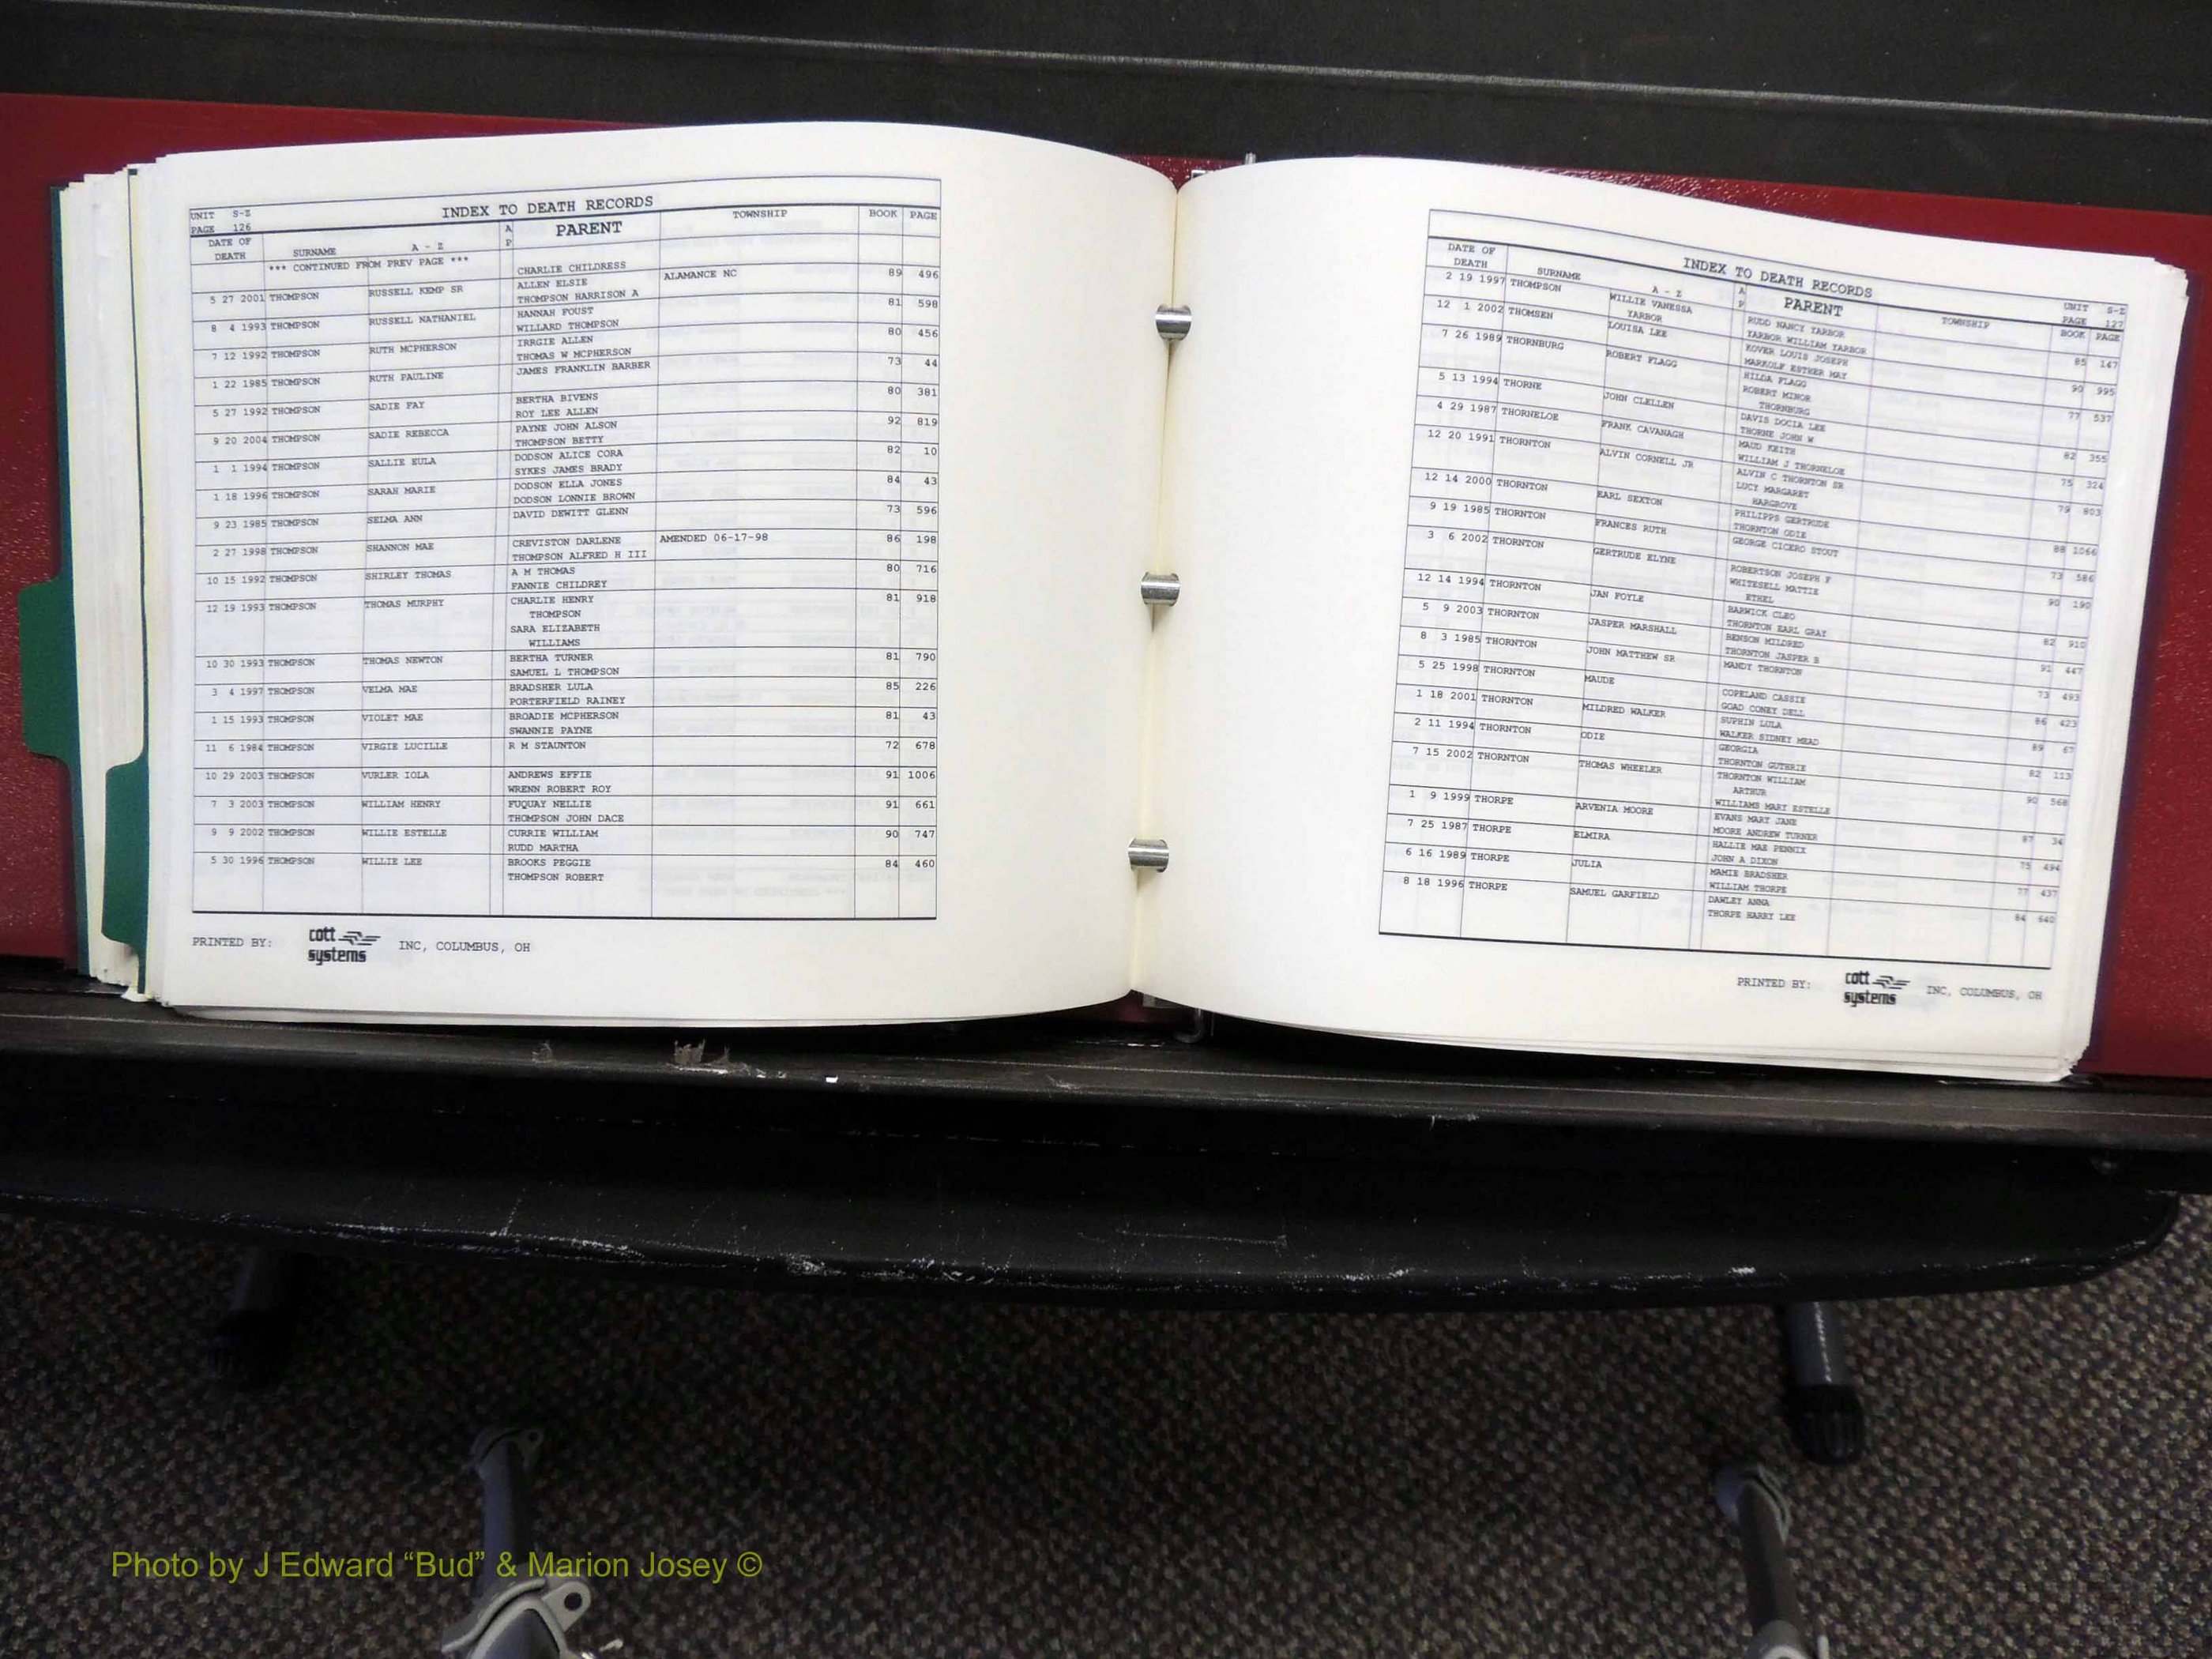 UNIT S-Z
PAGE 126
INDEX TO DEATH RECORDS
DATE OF DEATH SURNAME A - Z A P PARENT TOWNSHIP BOOK PAGE
*** CONTINUED FROM PREV PAGE *** CHARLIE CHILDRESS
5 27 2001 THOMPSON RUSSELL KEMP SR ALLEN ELSIE ALAMANCE NC 89 496
THOMPSON HARRISON A
8 4 1993 THOMPSON RUSSELL NATHANIEL HANNAH FOUST 81 598
WILLARD THOMPSON
7 12 1992 THOMPSON RUTH MCPHERSON IRRGIE ALLEN 80 456
THOMAS W MCPHERSON
1 22 1985 THOMPSON RUTH PAULINE JAMES FRANKLIN BARBER 73 44
5 27 1992 THOMPSON SADIE FAY BERTHA BIVENS 80 381
ROY LEE ALLEN
9 20 2004 THOMPSON SADIE REBECCA PAYNE JOHN ALSON 92 819
THOMPSON BETTY
1 1 1994 THOMPSON SALLIE EULA DODSON ALICE CORA 82 10
SYKES JAMES BRADY
1 18 1996 THOMPSON SARAH MARIE DODSON ELLA JONES 84 43
DODSON LONNIE BROWN
9 23 1985 THOMPSON SELMA ANN DAVID DEWITT GLENN 73 596
2 27 1998 THOMPSON SHANNON MAE CREVISTON DARLENE AMENDED 06-17-98 86 198
THOMPSON ALFRED H III
10 15 1992 THOMPSON SHIRLEY THOMAS A M THOMAS 80 716
FANNIE CHILDREY
12 19 1993 THOMPSON THOMAS MURPHY CHARLIE HENRY 81 918
THOMPSON
SARA ELIZABETH
WILLIAMS
10 30 1993 THOMPSON THOMAS NEWTON BERTHA TURNER 81 790
SAMUEL L THOMPSON
3 4 1997 THOMPSON VELMA MAE BRADSHER LULA 85 226
PORTERFIELD RAINEY
1 15 1993 THOMPSON VIOLET MAE BROADIE MCPHERSON 81 43
SWANNIE PAYNE
11 6 1984 THOMPSON VIRGIE LUCILLE R M STAUNTON 72 678
10 29 2003 THOMPSON VURLER IOLA ANDREWS EFFIE 91 1006
WRENN ROBERT ROY
7 3 2003 THOMPSON WILLIAM HENRY FUQUAY NELLIE 91 661
THOMPSON JOHN DACE
9 9 2002 THOMPSON WILLIE ESTELLE CURRIE WILLIAM 90 747
RUDD MARTHA
5 30 1996 THOMPSON WILLIE LEE BROOKS PEGGIE 84 460
THOMPSON ROBERT
PRINTED BY: cott systems INC, COLUMBUS, OH
INDEX TO DEATH RECORDS
UNIT S-Z
PAGE 127
DATE OF DEATH SURNAME A - Z A P PARENT TOWNSHIP BOOK PAGE
2 19 1997 THOMPSON WILLIE VANESSA RUDD NANCY YARBOR 85 147
YARBOR YARBOR WILLIAM YARBOR
12 1 2002 THOMSEN LOUISA LEE KOVER LOUIS JOSEPH 90 995
MARKOLF ESTHER MAY
7 26 1989 THORNBURG ROBERT FLAGG HILDA FLAGG 77 537
ROBERT MINOR
THORNBURG
5 13 1994 THORNE JOHN CLELLEN DAVIS DOCIA LEE 82 355
THORNE JOHN W
4 29 1987 THORNELOE FRANK CAVANAGH MAUD KEITH 75 324
WILLIAM J THORNELOE
12 20 1991 THORNTON ALVIN CORNELL JR ALVIN C THORNTON SR 79 803
LUCY MARGARET
HARGROVE
12 14 2000 THORNTON EARL SEXTON PHILIPPS GERTRUDE 88 1066
THORNTON ODIE
9 19 1985 THORNTON FRANCES RUTH GEORGE CICERO STOUT 73 586
3 6 2002 THORNTON GERTRUDE ELYNE ROBERTSON JOSEPH F 90 190
WHITESELL MATTIE
ETHEL
12 14 1994 THORNTON JAN FOYLE BARWICK CLEO 82 910
THORNTON EARL GRAY
5 9 2003 THORNTON JASPER MARSHALL BENSON MILDRED 91 447
THORNTON JASPER B
8 3 1985 THORNTON JOHN MATTHEW SR MANDY THORNTON 73 493
5 25 1998 THORNTON MAUDE COPELAND CASSIE 86 423
GOAD CONEY DELL
1 18 2001 THORNTON MILDRED WALKER SUPHIN LULA 89 67
WALKER SIDNEY MEAD
2 11 1994 THORNTON ODIE GEORGIA 82 113
THORNTON GUTHRIE
7 15 2002 THORNTON THOMAS WHEELER THORNTON WILLIAM 90 568
ARTHUR
WILLIAMS MARY ESTELLE
1 9 1999 THORPE ARVENIA MOORE EVANS MARY JANE 87 34
MOORE ANDREW TURNER
7 25 1987 THORPE ELMIRA HALLIE MAE PENNIX 75 494
JOHN A DIXON
6 16 1989 THORPE JULIA MAMIE BRADSHER 77 437
WILLIAM THORPE
8 18 1996 THORPE SAMUEL GARFIELD DAWLEY ANNA 84 640
THORPE HARRY LEE
PRINTED BY: cott systems INC, COLUMBUS, OH
Photo by J Edward “Bud” & Marion Josey ©